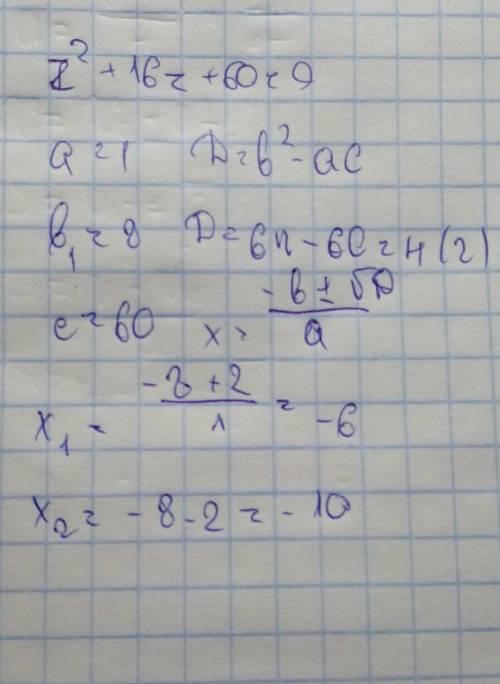 z² + 16z + 60 = 0
a = 1 D = b² - ac
b₁ = 8 D = 64 - 60 = 4 (2)
c = 60 x = (-b ± √D) / a
x₁ = (-8 + 2) / 1 = -6
x₂ = -8 - 2 = -10